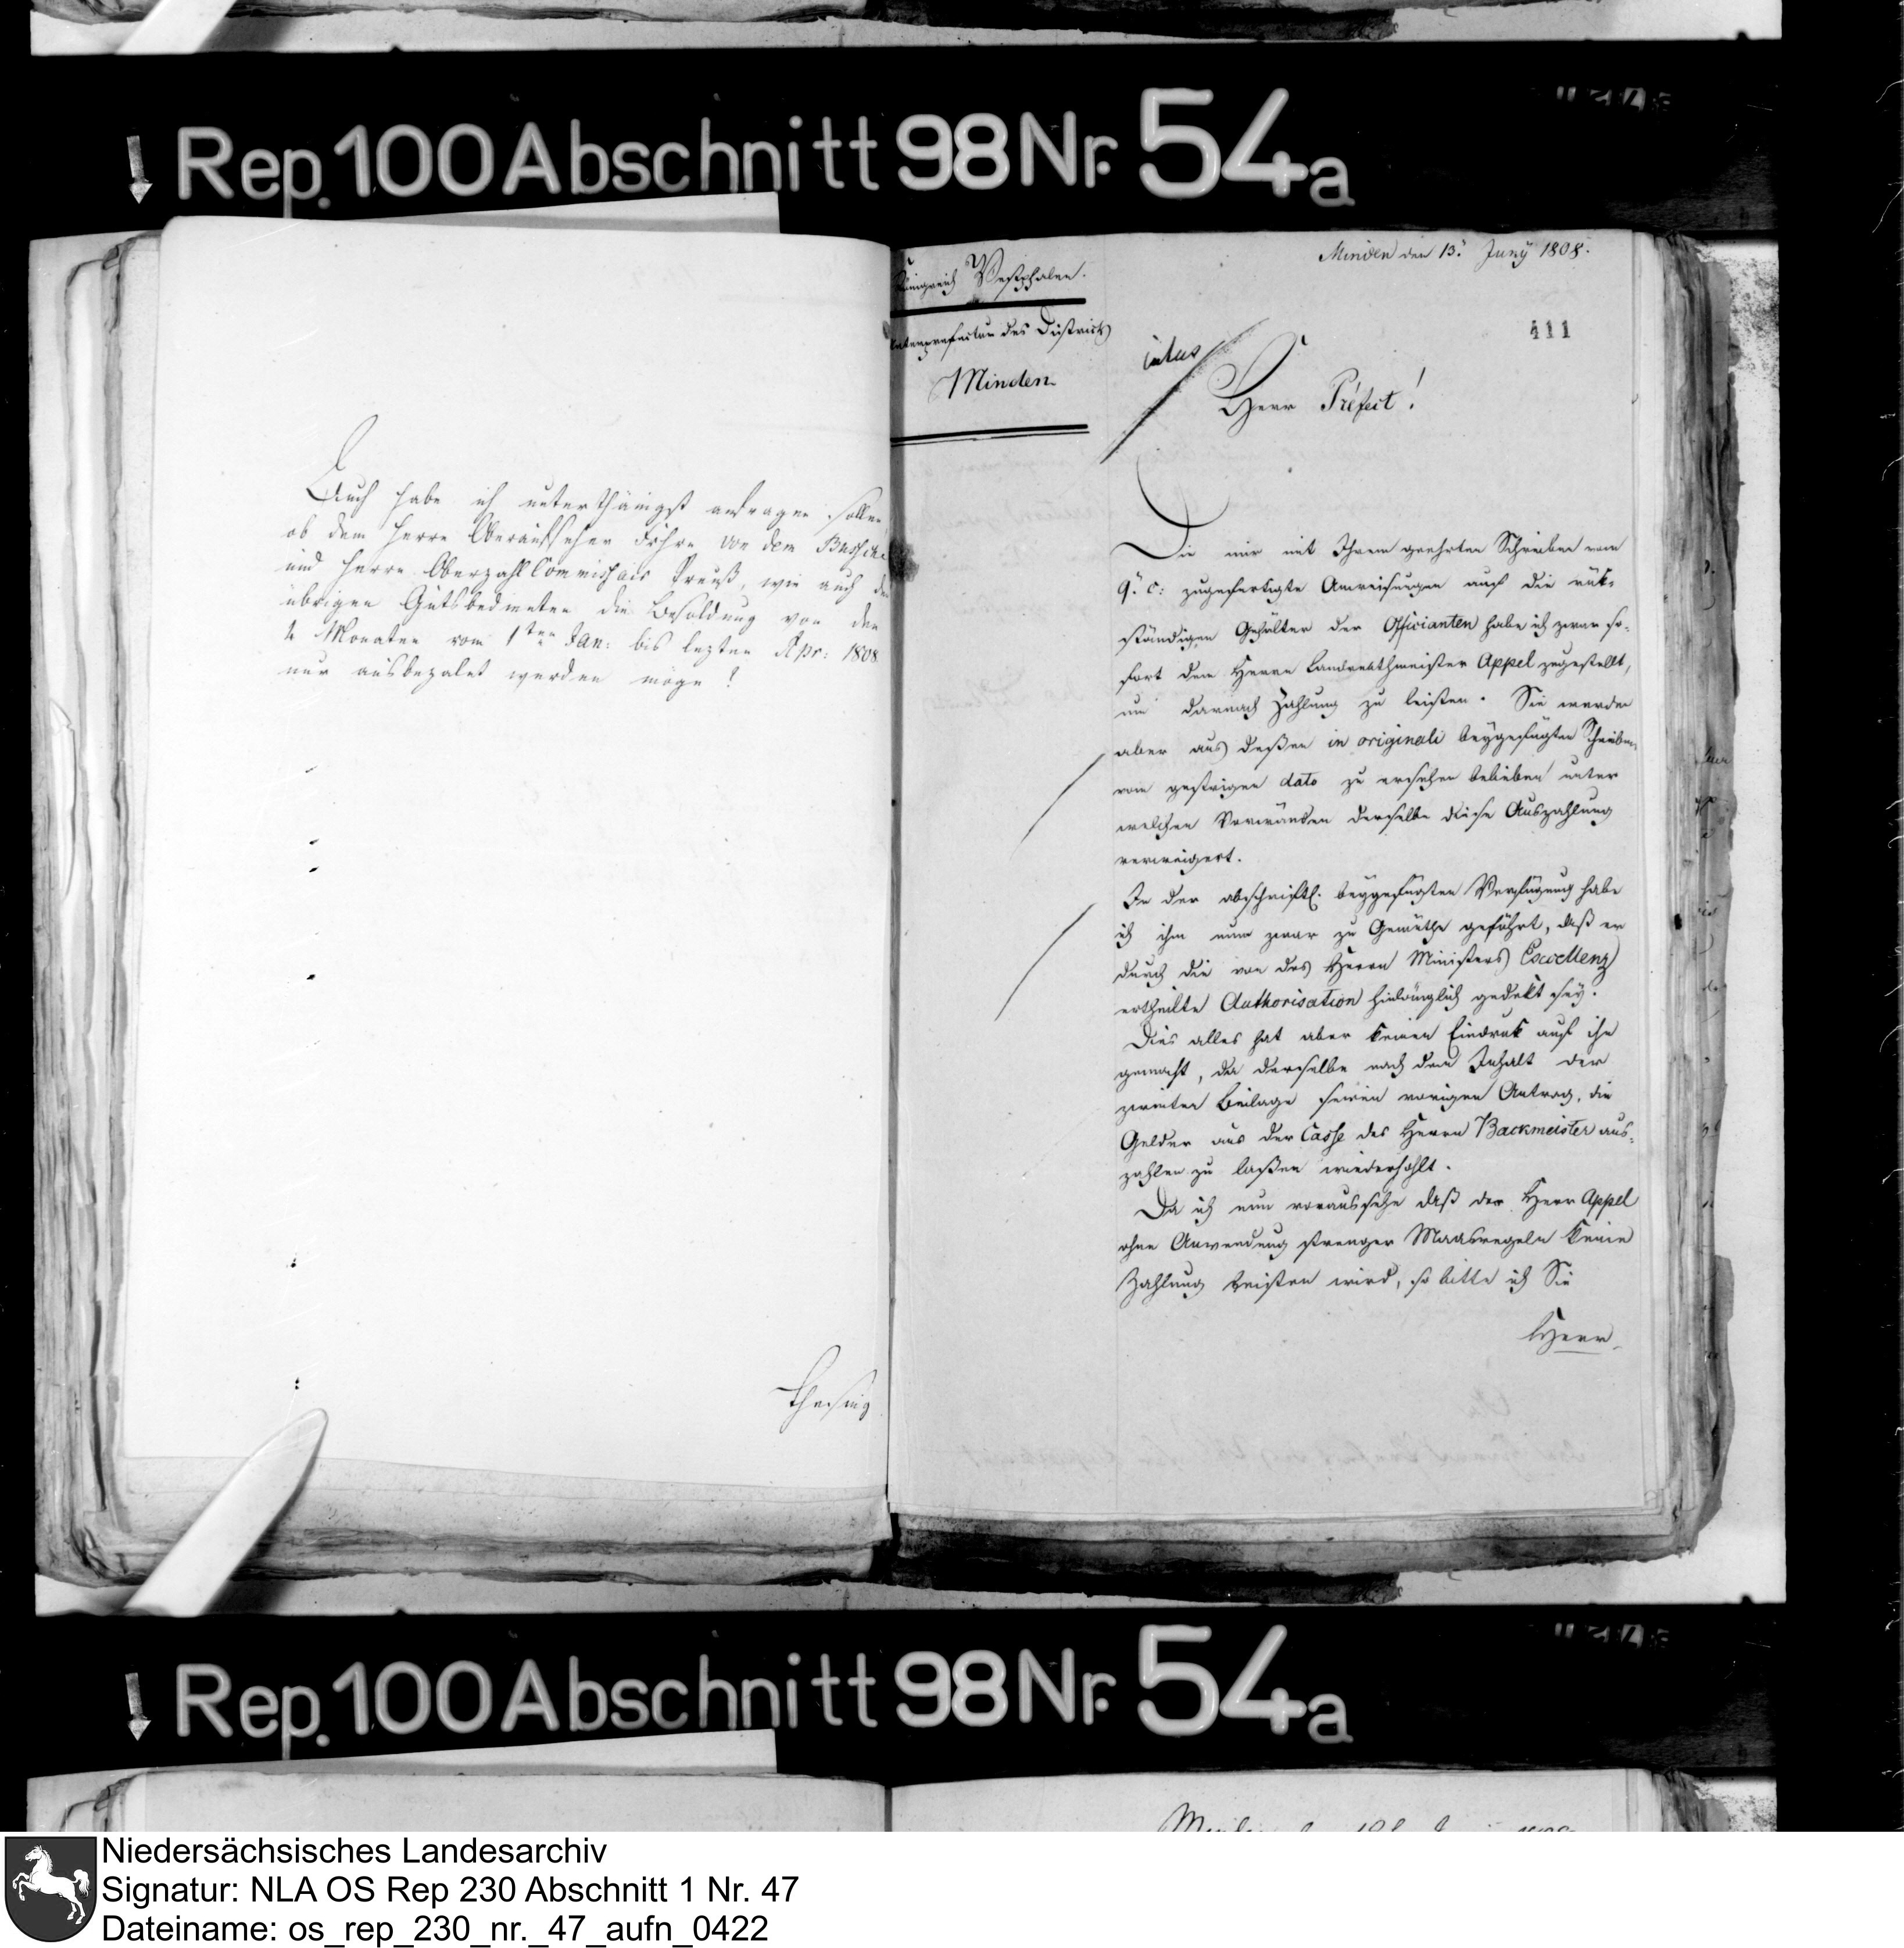 Rep. 100 Abschnitt 98 Nr. 54a
Auch habe ich unterthänigst anfragen sollen
ob dem Herrn Oberaufseher Frhrn von dem Bussche
und Herrn Oberzahl Commissair Preuß, wie auch den
übrigen Gutsbedienten die Besoldung von den
4 Monaten vom 1ten Jan: bis lezten Apr: 1808
nur ausbezalet werden möge?
Thesing
Königreich Westphalen.
Unterprefectur des Districts
Minden
Minden den 13. Juny 1808.
411
intus
Herr Préfect!
Die mir mit Ihrem geehrten Schreiben vom
9. c: zugefertigte Anweisungen auf die rük-
ständigen Gehälter der Officianten habe ich zwar so-
fort dem Herrn Landrethmeister Appel zugestellt,
um darnach Zahlung zu leisten. Sie werden
aber aus deßen in originali beygefügten Schreiben
vom gestrigen dato zu ersehen belieben unter
welchen Vorwänden derselbe diese Auszahlung
verweigert.
In der abschriftl. beygefügten Verfügung habe
ich ihm nun zwar zu Gemüthe geführt, daß er
durch die von des Herrn Ministers Excellenz
ertheilte Authorisation hinlänglich gedekt sey.
Dies alles hat aber keinen Eindruk auf ihn
gemacht, da derselbe nach dem Inhalt der
zweiten Beilage seinen vorigen Antrag, die
Gelder aus der Casse des Herrn Backmeister aus-
zahlen zu laßen wiederhohlt.
Da ich nun voraussehe daß der Herr Appel
ohne Anwendung strenger Maasregeln keine
Zahlung leisten wird, so bitte ich Sie
Herr
Rep. 100 Abschnitt 98 Nr. 54a
Niedersächsisches Landesarchiv
Signatur: NLA OS Rep 230 Abschnitt 1 Nr. 47
Dateiname: os_rep_230_nr._47_aufn_0422